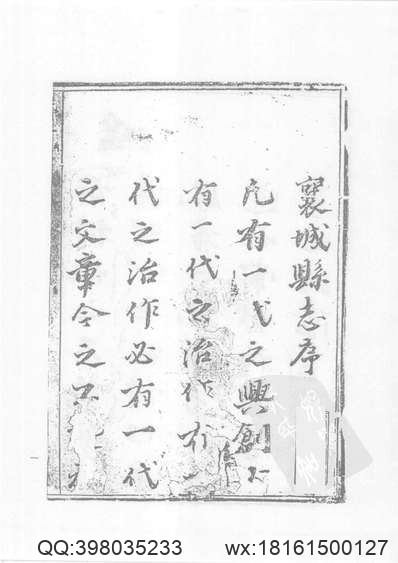 襄城縣志序
凡有一代之興創必
有一代之治作有一
代之治作必有一代
之文章今之
QQ:398035233 wx:18161500127